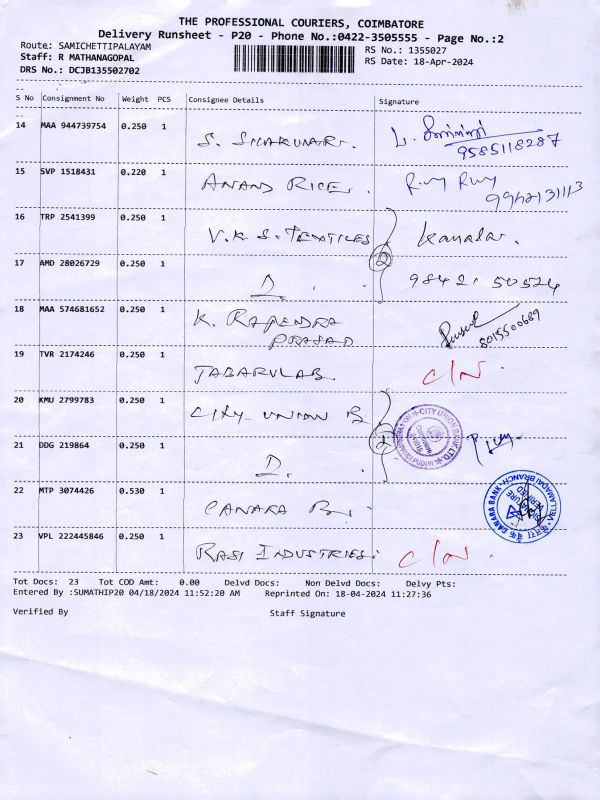 THE PROFESSIONAL COURIERS, COIMBATORE
Delivery Runsheet - P20 - Phone No.:0422-3505555 - Page No.:2
Route: SAMICHETTIPALAYAM
RS No.: 1355027
Staff: R MATHANAGOPAL
RS Date: 18-Apr-2024
DRS No.: DCJB135502702
S No Consignment No Weight PCS Consignee Details Signature
14 MAA 944739754 0.250 1 S.
9585118287
15 SVP 1518431 0.220 1 ANAND RICE.
16 TRP 2541399 0.250 1 V.K.S. TEXTILES
②
17 AMD 28026729 0.250 1 D. 98421 50524
18 MAA 574681652 0.250 1 K. RAJENDRA
PRASAD
8015500689
19 TVR 2174246 0.250 1 C/N.
20 KMU 2799783 0.250 1 CITY UNION B
CITY UNION BANK LTD.
21 DDG 219864 0.250 1 D.
22 MTP 3074426 0.530 1 CANARA B.
CANARA BANK - VELLAMADAI BRANCH
SIGNATURE VERIFIED
23 VPL 222445846 0.250 1 RASI INDUSTRIES. C/N.
Tot Docs: 23 Tot COD Amt: 0.00 Delvd Docs: Non Delvd Docs: Delvy Pts:
Entered By :SUMATHIP20 04/18/2024 11:52:20 AM Reprinted On: 18-04-2024 11:27:36
Verified By Staff Signature